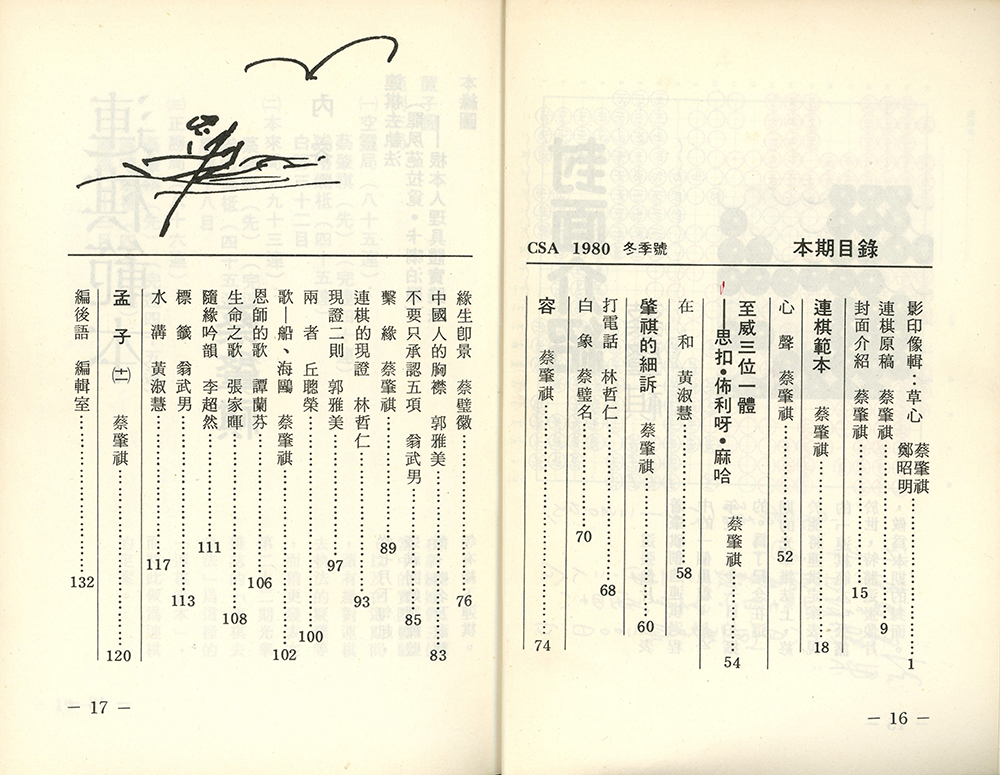 CSA 1980 冬季號 本期目錄
影印像輯：草心 蔡肇祺 鄭昭明……1
連棋原稿 蔡肇祺……9
封面介紹 蔡肇祺……15
連棋範本 蔡肇祺……18
心聲 蔡肇祺……52
至威三位一體
——思扣・佈利呀・麻哈 蔡肇祺……54
在和 黃淑慧……58
肇祺的細訴 蔡肇祺……60
打電話 林哲仁……68
白象 蔡璧名……70
容 蔡肇祺……74
— 16 —
緣生卽景 蔡璧徽……76
中國人的胸襟 郭雅美……83
不要只承認五項 翁武男……85
繫緣 蔡肇祺……89
連棋的現證 林哲仁……93
現證二則 郭雅美……97
兩者 丘聰榮……100
歌—船、海鷗 蔡肇祺……102
恩師的歌 譚蘭芬……106
生命之歌 張家暉……108
隨緣吟韻 李超然……111
標籤 翁武男……113
水溝 黃淑慧……117
孟子㈡ 蔡肇祺……120
編後語 編輯室……132
— 17 —